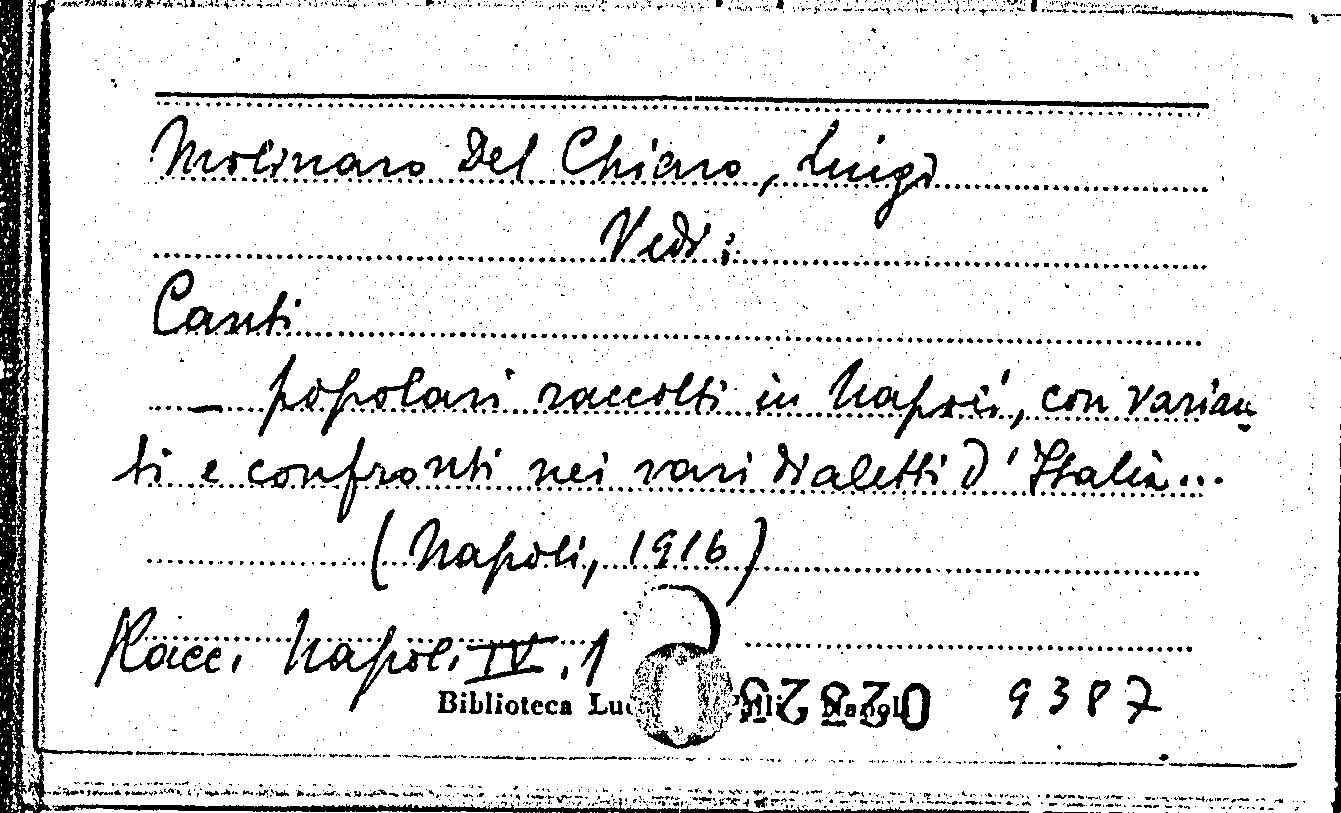 Molinaro Del Chiaro, Luigi
Vedi:
Canti
— popolari raccolti in Napoli, con varian-
ti e confronti nei vari dialetti d'Italia...
(Napoli, 1916)
Racc. Napol. IV. 1
Biblioteca
9387